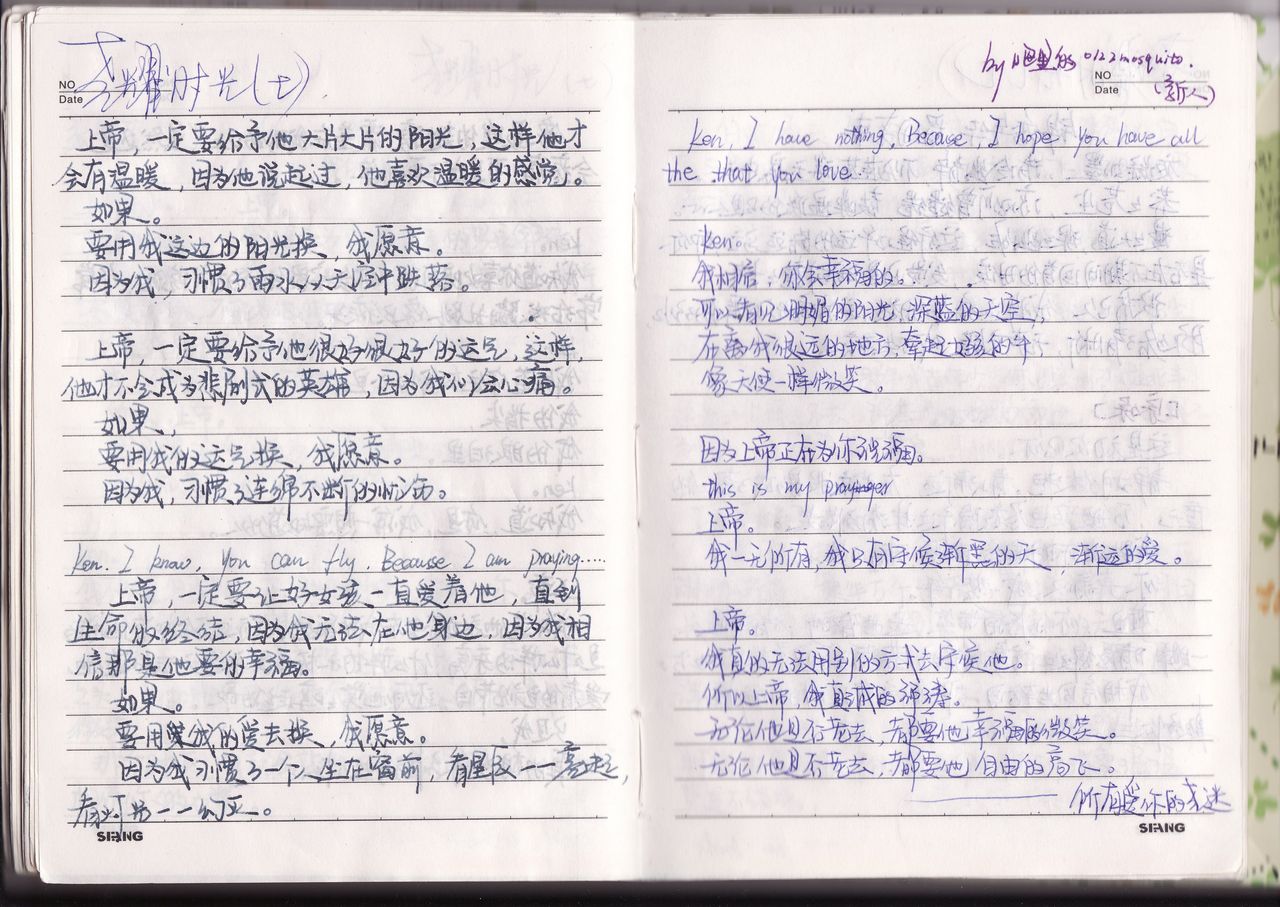 耀时光(七)
NO
Date
上帝，一定要给予他大片大片的阳光，这样他才
会有温暖，因为他说起过，他喜欢温暖的感觉。
如果。
要用我这边的阳光换，我愿意。
因为我，习惯了雨水从天空中跌落。
上帝，一定要给予他很好很好的运气，这样，
他才不会成为悲剧式的英雄，因为我们会心痛。
如果，
要用我的运气换，我愿意。
因为我，习惯了连绵不断的忧伤。
Ken. I know, you can fly. Because I am praying.....
上帝，一定要让好女孩一直爱着他，直到
生命的终结，因为我无法在他身边，因为我相
信那是他要的幸福。
如果。
要用我的爱去换，我愿意。
因为我习惯了一个人坐在窗前，看星辰一一亮起，
看灯火一一幻灭。
SIFANG
by 的 0122mosquito.
NO
Date
(新人)
Ken, I have nothing, Because, I hope you have all
the that you love.
Ken。
我相信，你会幸福的。
可以看见明媚的阳光，深蓝的天空，
在离我很远的地方，牵起女孩的手，
像天使一样微笑。
因为上帝正在为你祝福。
this is my prayer
上帝。
我一无所有，我只有守候渐黑的天，渐远的爱。
上帝。
我真的无法用别的方式去守候他。
所以上帝，我真诚的祷告。
无论他是否老去，都要他幸福的微笑。
无论他是否老去，都要他自由的高飞。
——所有爱你的迷
SIFANG